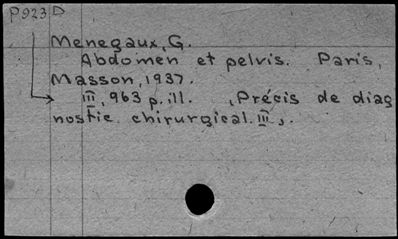 P923D
Menegaux, G.
Abdomen et pelvis. Paris,
Masson, 1937.
III, 963 p. ill. (Précis de diag
nostic chirurgical. III).